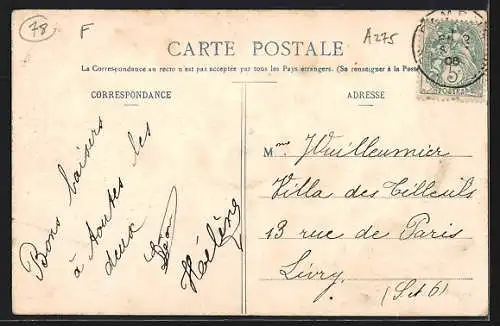 78
F
A275
CARTE POSTALE
La Correspondance au recto n'est pas acceptée par tous les Pays étrangers. (Se renseigner à la Poste
CORRESPONDANCE
ADRESSE
Bons baisers
à toutes les
deux
Léon
Hélène
Mme Wuilleumier
Villa des Tilleuls
13 rue de Paris
Livry.
(S et O)
5
POSTES
08